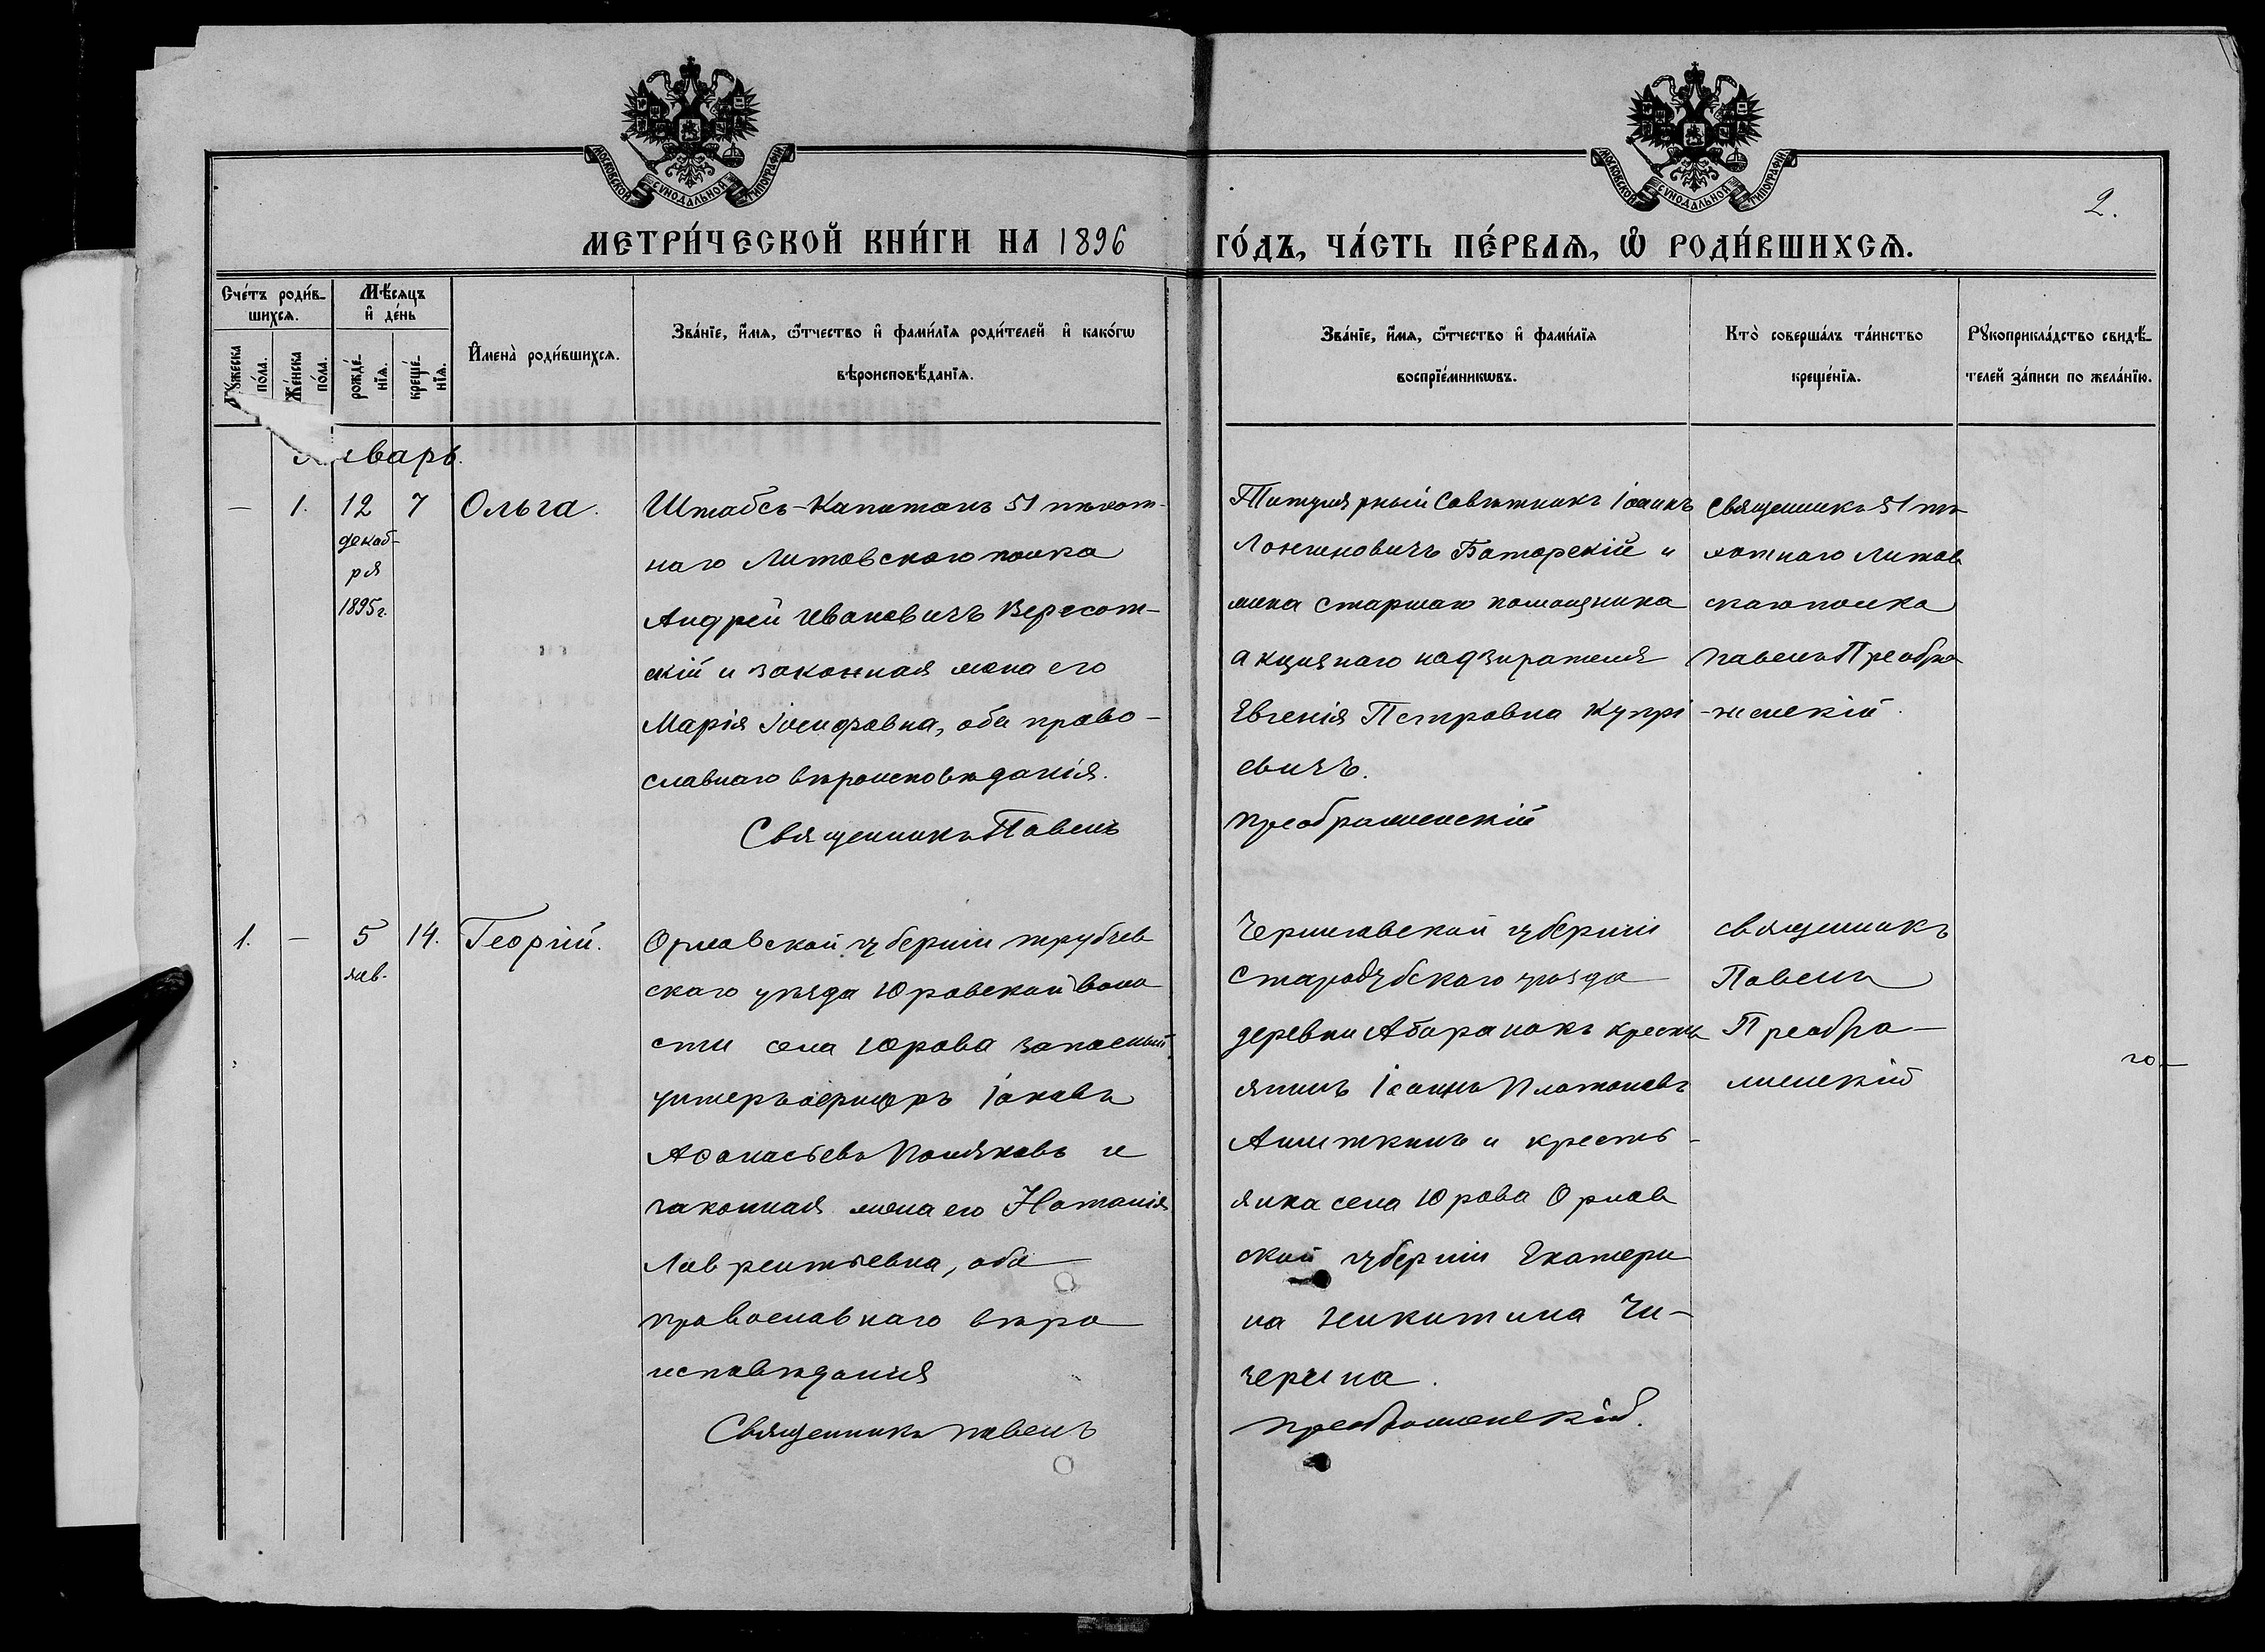 МОСКОВСКОЙ СѴНОДАЛЬНОЙ ТИПОГРАФІИ
МОСКОВСКОЙ СѴНОДАЛЬНОЙ ТИПОГРАФІИ
2.
МЕТРИ́ЧЕСКОЙ КНИ́ГИ НА 1896
ГО́ДЪ, ЧА́СТЬ ПЕ́РВАѦ, Ѡ҆ РОДИ́ВШИХСѦ.
Сче́тъ роди́в-
шихсѧ.
Мѣ́сѧцъ
и҆ де́нь
Мꙋ́жеска
по́ла.
Же́нска
по́ла.
рожде́-
нїѧ.
креще́-
нїѧ.
И҆мена̀ роди́вшихсѧ.
Зва́нїе, и҆́мѧ, ѻ҆́тчество и҆ фами́лїѧ роди́телей и҆ како́гѡ
вѣроисповѣ́данїѧ.
Зва́нїе, и҆́мѧ, ѻ҆́тчество и҆ фами́лїѧ
воспрїе́мникѡвъ.
Кто̀ соверша́лъ та́инство
креще́нїѧ.
Рꙋкоприкла́дство свидѣ́-
телей за́писи по жела́нїю.
Январь.
— 1. 12 7 Ольга.
декаб-
ря
1895 г.
Штабсъ-Капитанъ 51 пѣхот-
наго Литовскаго полка
Андрей Ивановичъ Вересот-
скій и законная жена его
Марія Іосифовна, оба право-
славнаго вѣроисповѣданія.
Священникъ Павелъ
Титулярный Совѣтникъ Іоаннъ
Лонгиновичъ Баторскій и
жена старшаго помощника
акцизнаго надзирателя
Евгенія Петровна Купрі
евичъ.
Преображенскій
Священникъ 51 пѣ
хотнаго Литов
скаго полка
Павелъ Преобра
-женскій.
1. — 5 14. Георгій.
янв.
Орловской губерніи Трубчев
скаго уѣзда Юровской воло
сти села Юрова запасный
унтеръ-офицеръ Іаковъ
Аѳанасьевъ Поляковъ и
законная жена его Наталія
Лаврентьевна, оба
православнаго вѣро
исповѣданія
Священникъ Павелъ
Черниговской губерніи
Стародубскаго уѣзда
деревни Абаранокъ кресть
янинъ Іоаннъ Платоновъ
и кресть-
янка села Юрова Орлов
ской губерніи Екатери
на Никитина Чи-
черина.
Преображенскій.
Священникъ
Павелъ
Преобра-
женскій
го—